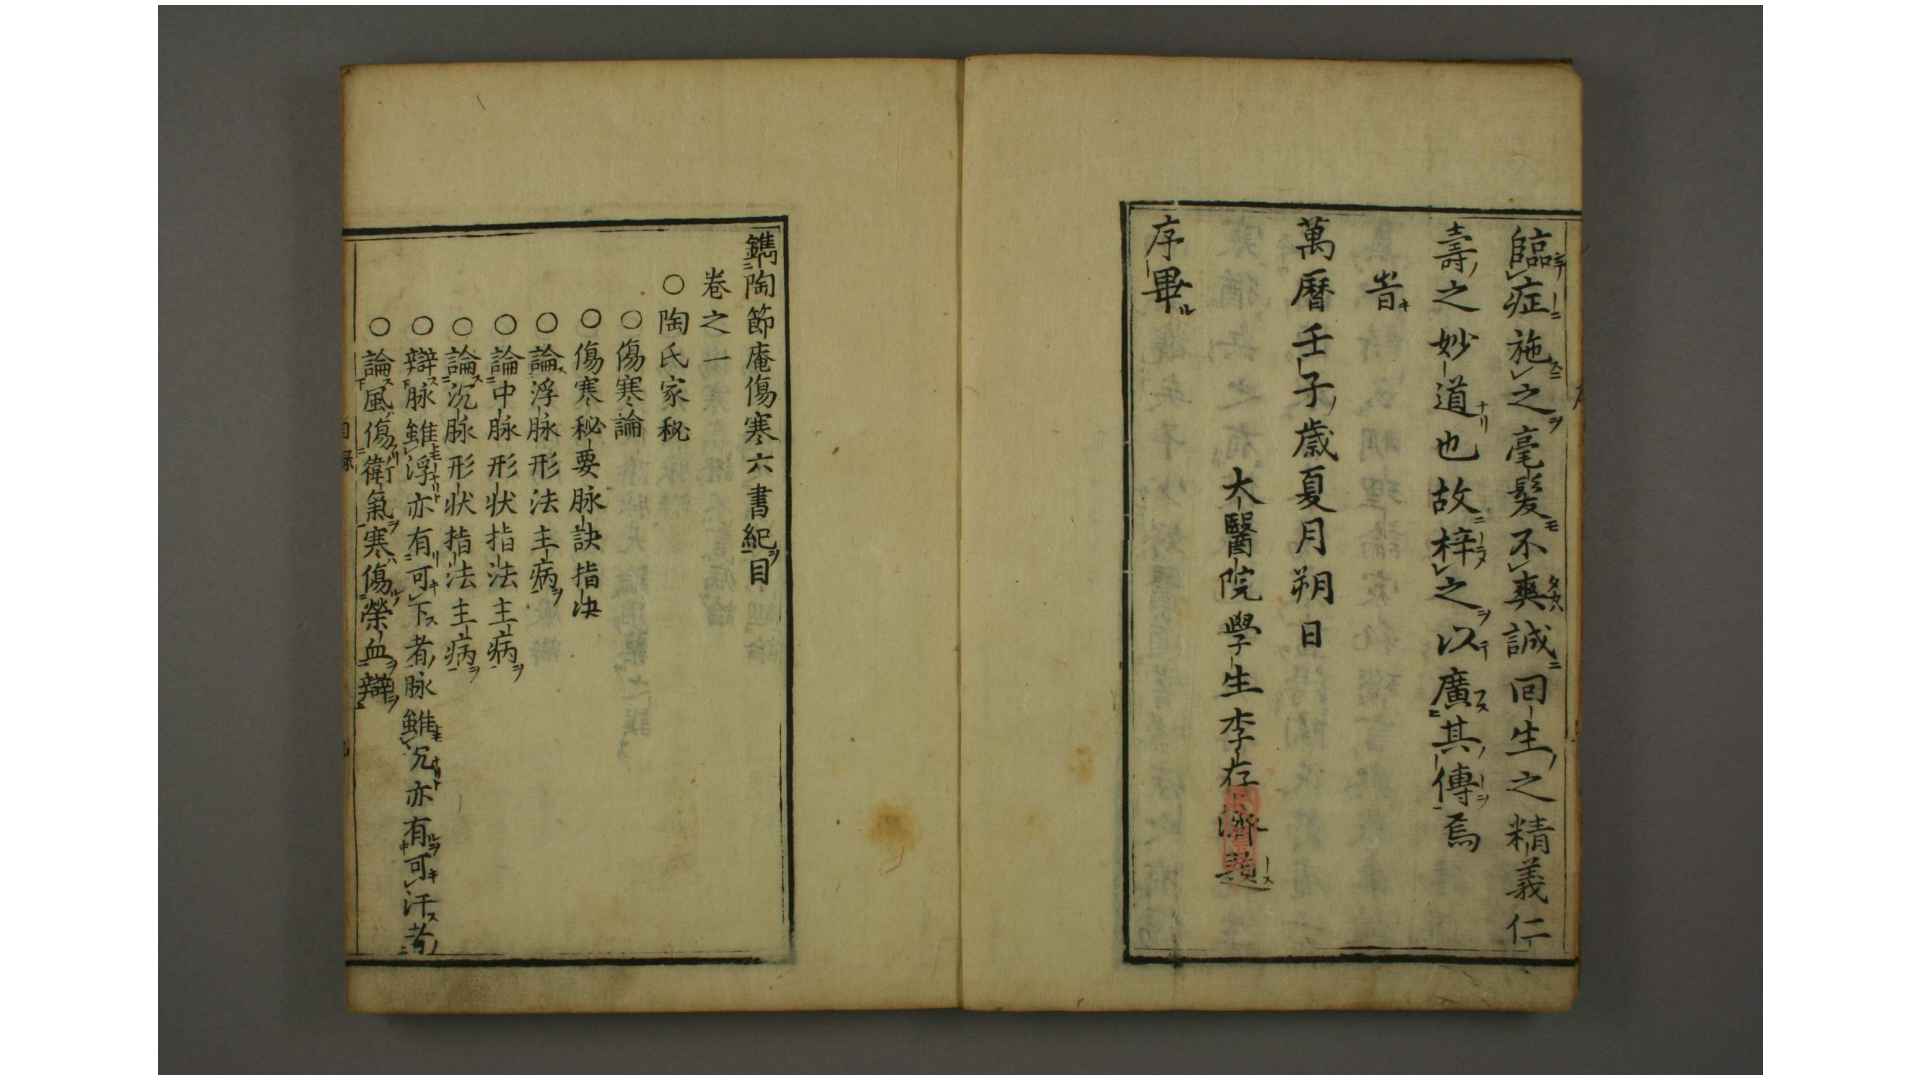 臨症施之毫髮不爽誠回生之精義仁
壽之妙道也故梓之以廣其傳焉
旹
萬曆壬子歲夏月朔日
太醫院學生李存濟題
序畢
鐫陶節庵傷寒六書紀目
卷之一
○陶氏家秘
○傷寒論
○傷寒秘要脉訣指決
○論浮脉形法主病
○論中脉形状指法主病
○論沉脉形状指法主病
○辯脉雖浮亦有可下者脉雖沉亦有可汗者
○論風傷衛氣寒傷榮血辯
目錄